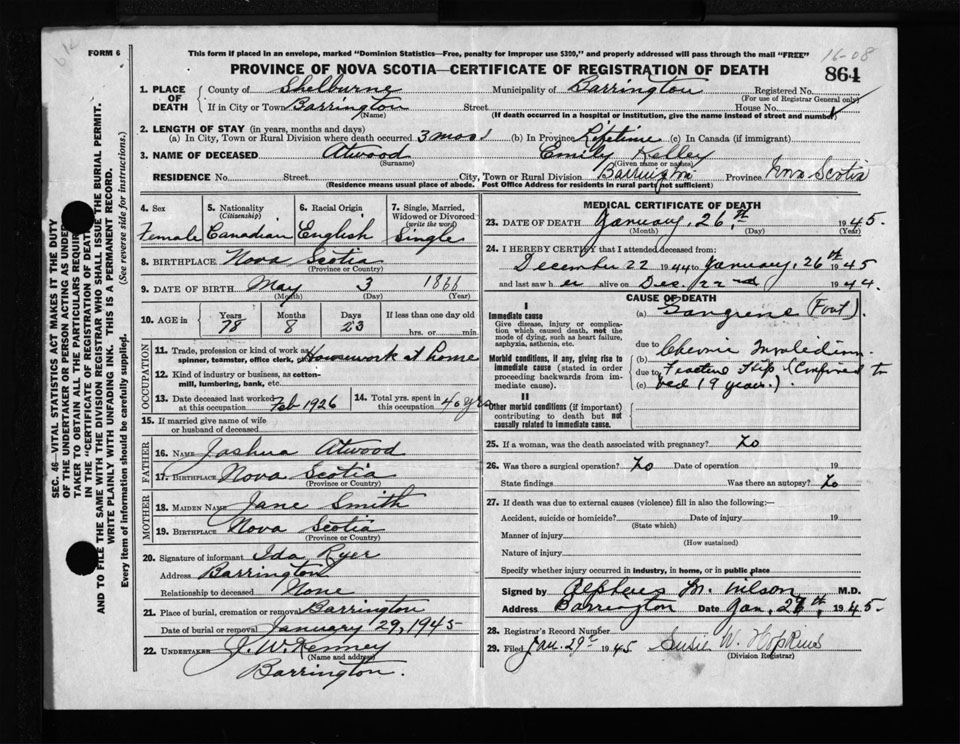 FORM 6
This form if placed in an envelope, marked "Dominion Statistics—Free, penalty for improper use $300," and properly addressed will pass through the mail "FREE"
16-08
PROVINCE OF NOVA SCOTIA—CERTIFICATE OF REGISTRATION OF DEATH
864
1. PLACE OF DEATH
County of Shelburne Municipality of Barrington Registered No.
(For use of Registrar General only)
If in City or Town Barrington Street House No.
(Name) (If death occurred in a hospital or institution, give the name instead of street and number)
2. LENGTH OF STAY (in years, months and days)
(a) In City, Town or Rural Division where death occurred 3 mos (b) In Province Lifetime (c) In Canada (if immigrant)
3. NAME OF DECEASED Atwood Emily Kelley
(Surname) (Given name or names)
RESIDENCE No. Street City, Town or Rural Division Barrington Province Nova Scotia
(Residence means usual place of abode. Post Office Address for residents in rural parts not sufficient)
4. Sex
Female
5. Nationality
(Citizenship)
Canadian
6. Racial Origin
English
7. Single, Married, Widowed or Divorced
(write the word)
Single
8. BIRTHPLACE Nova Scotia
(Province or Country)
9. DATE OF BIRTH May 3 1866
(Month) (Day) (Year)
10. AGE in
Years Months Days If less than one day old
78 8 23 hrs. or min
OCCUPATION
11. Trade, profession or kind of work as
spinner, teamster, office clerk, Housework at home
12. Kind of industry or business, as cotton-
mill, lumbering, bank, etc.
13. Date deceased last worked
at this occupation Feb 1926
14. Total yrs. spent in
this occupation 40 yrs
15. If married give name of wife
or husband of deceased
FATHER
16. NAME Joshua Atwood
17. BIRTHPLACE Nova Scotia
(Province or Country)
MOTHER
18. MAIDEN NAME Jane Smith
19. BIRTHPLACE Nova Scotia
(Province or Country)
20. Signature of informant Ida Ryer
Address Barrington
Relationship to deceased None
21. Place of burial, cremation or removal Barrington
Date of burial or removal January 29, 1945
22. UNDERTAKER J. W. Kenney
(Name and address)
Barrington.
MEDICAL CERTIFICATE OF DEATH
23. DATE OF DEATH January, 26th, 1945.
(Month) (Day) (Year)
24. I HEREBY CERTIFY that I attended deceased from:
December 22 1944 to January, 26th 1945
and last saw her alive on Dec. 22nd 1944.
CAUSE OF DEATH
I
Immediate cause
Give disease, injury or complica-
tion which caused death, not the
mode of dying, such as heart failure,
asphyxia, asthenia, etc.
(a) Gangrene (Foot).
due to
Morbid conditions, if any, giving rise to
immediate cause (stated in order
proceeding backwards from im-
mediate cause).
(b) Chronic Invalidism.
due to Fractured Hip (Confined to
(c) bed 19 years.)
II
Other morbid conditions (if important)
contributing to death but not
causally related to immediate cause.
25. If a woman, was the death associated with pregnancy? No
26. Was there a surgical operation? No Date of operation 19
State findings Was there an autopsy? No
27. If death was due to external causes (violence) fill in also the following:—
Accident, suicide or homicide? Date of injury 19
(State which)
Manner of injury
(How sustained)
Nature of injury
Specify whether injury occurred in industry, in home, or in public place
Signed by Alpheus M. Wilson M.D.
Address Barrington Date Jan. 27th, 1945.
28. Registrar's Record Number
29. Filed Jan. 29th 1945 Susie W. Hopkins
(Division Registrar)
SEC. 46—VITAL STATISTICS ACT MAKES IT THE DUTY
OF THE UNDERTAKER OR PERSON ACTING AS UNDER-
TAKER TO OBTAIN ALL THE PARTICULARS REQUIRED
IN THE "CERTIFICATE OF REGISTRATION OF DEATH
AND TO FILE THE SAME WITH THE DIVISION REGISTRAR WHO SHALL ISSUE THE BURIAL PERMIT.
WRITE PLAINLY WITH UNFADING INK. THIS IS A PERMANENT RECORD.
Every item of information should be carefully supplied. (See reverse side for instructions.)